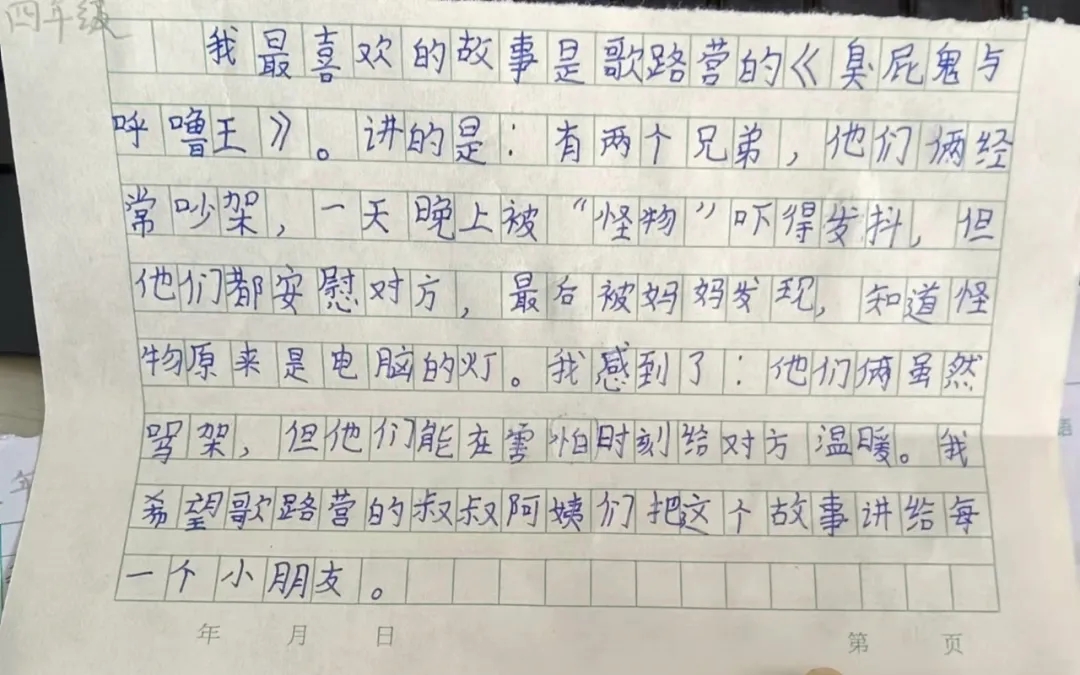 四年级
我最喜欢的故事是歌路营的《臭屁鬼与
呼噜王》。讲的是：有两个兄弟，他们俩经
常吵架，一天晚上被“怪物”吓得发抖，但
他们都安慰对方，最后被妈妈发现，知道怪
物原来是电脑的灯。我感到了：他们俩虽然
骂架，但他们能在害怕时刻给对方温暖。我
希望歌路营的叔叔阿姨们把这个故事讲给每
一个小朋友。
年 月 日
第 页